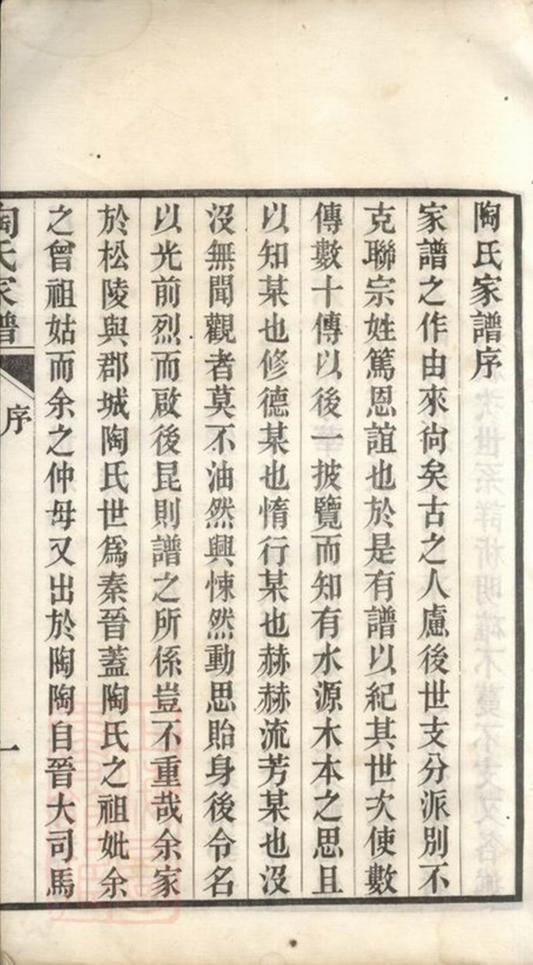 陶氏家譜序
家譜之作由來尙矣古之人慮後世支分派別不
克聯宗姓篤恩誼也於是有譜以紀其世次使數
傳數十傳以後一披覽而知有水源木本之思且
以知某也修德某也惰行某也赫赫流芳某也沒
沒無聞觀者莫不油然興悚然動思貽身後令名
以光前烈而啟後昆則譜之所係豈不重哉余家
於松陵與郡城陶氏世爲秦晉蓋陶氏之祖妣余
之曾祖姑而余之仲母又出於陶陶自晉大司馬
陶氏家譜
序
一